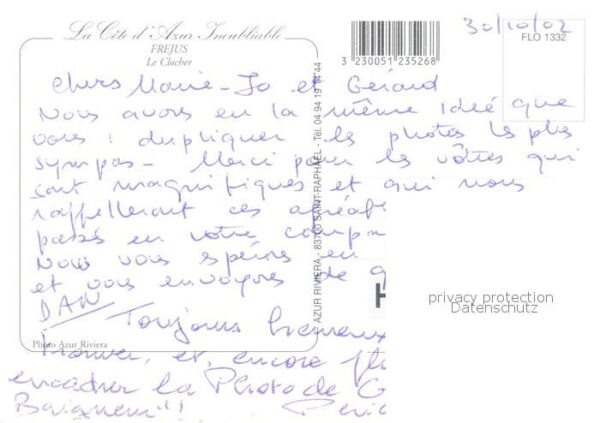 La Côte d'Azur Inoubliable
FREJUS
Le Clocher
30/10/02
FLO 1332
3 230051 235268
Chers Marie-Jo et Gérard
Nous avons eu la même idée que
vous : dupliquer les photos les plus
sympas - Merci pour les vôtres qui
sont magnifiques et qui nous
rappelleront ces
passés en votre
Nous vous espérons en
et vous envoyons de
DAN
Toujours
trouver, et, encore
encadrer la Photo de
Baigneur!!
AZUR RIVIERA - 83700 SAINT-RAPHAËL - Tél. 04 94 19 14 44
Photo Azur Riviera
privacy protection
Datenschutz